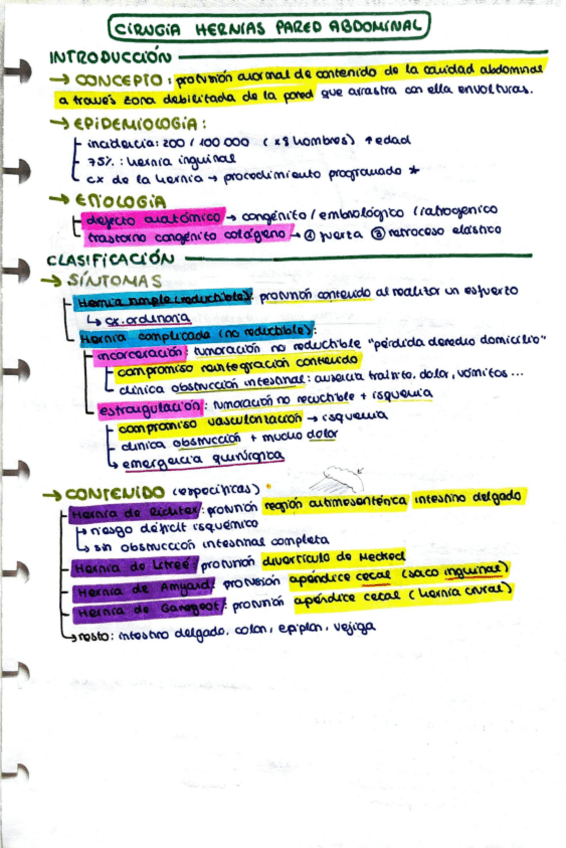 CIRUGÍA HERNIAS PARED ABDOMINAL
INTRODUCCIÓN
→ CONCEPTO: protusión anormal de contenido de la cavidad abdominal
a través zona debilitada de la pared que arrastra con ella envolturas.
→ EPIDEMIOLOGÍA:
incidencia: 200 / 100 000 (x8 hombres) ↑edad
75%: hernia inguinal
cx de la hernia → procedimiento programado *
→ ETIOLOGÍA
defecto anatómico → congénito / embriológico / iatrogénico
trastorno congénito colágeno → ① fuerza ② retroceso elástico
CLASIFICACIÓN
→ SÍNTOMAS
Hernia simple (reductible): protusión contenido al realizar un esfuerzo
↳ cx. ordinaria
Hernia complicada (no reductible):
incarceración: tumoración no reductible "pérdida derecho domicilio"
compromiso reintegración contenido
clínica obstrucción intestinal: ausencia tránsito, dolor, vómitos...
estrangulación: tumoración no reductible + isquemia
compromiso vascularización → isquemia
clínica obstrucción + mucho dolor
↳ emergencia quirúrgica
→ CONTENIDO (específicas)
Hernia de Richter: protusión región antimesentérica intestino delgado
↳ riesgo déficit isquémico
↳ sin obstrucción intestinal completa
Hernia de Litreé: protusión divertículo de Meckel
Hernia de Amyand: protusión apéndice cecal (saco inguinal)
Hernia de Garegeot: protusión apéndice cecal (hernia crural)
↳ resto: intestino delgado, colon, epiplon, vejiga